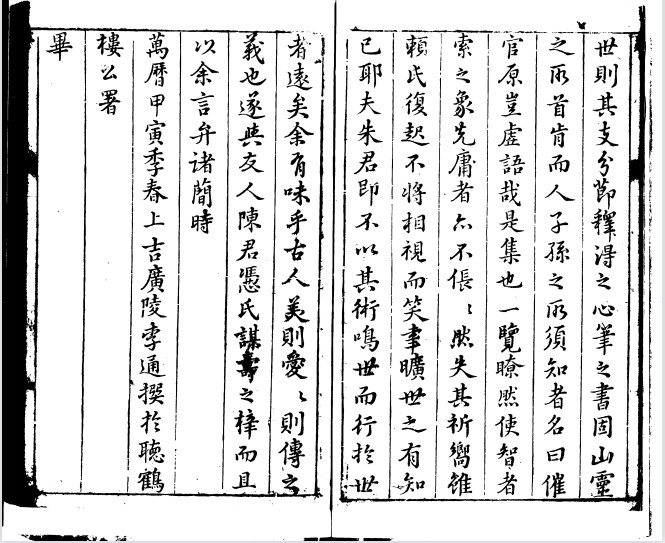 世則其支分節釋得之心筆之書固山靈
之所首肯而人子孫之所須知者名曰催
官原豈虛語哉是集也一覽瞭然使智者
索之象先庸者亦不倀〻然失其祈嚮雖
賴氏復起不將相視而笑事曠世之有知
己耶夫朱君即不以其術鳴世而行於世
者遠矣余有味乎古人美則愛〻則傳之
義也遂與友人陳君憑氏謀壽之梓而且
以余言弁諸簡時
萬曆甲寅季春上吉廣陵李通撰於聽鶴
樓公署
畢